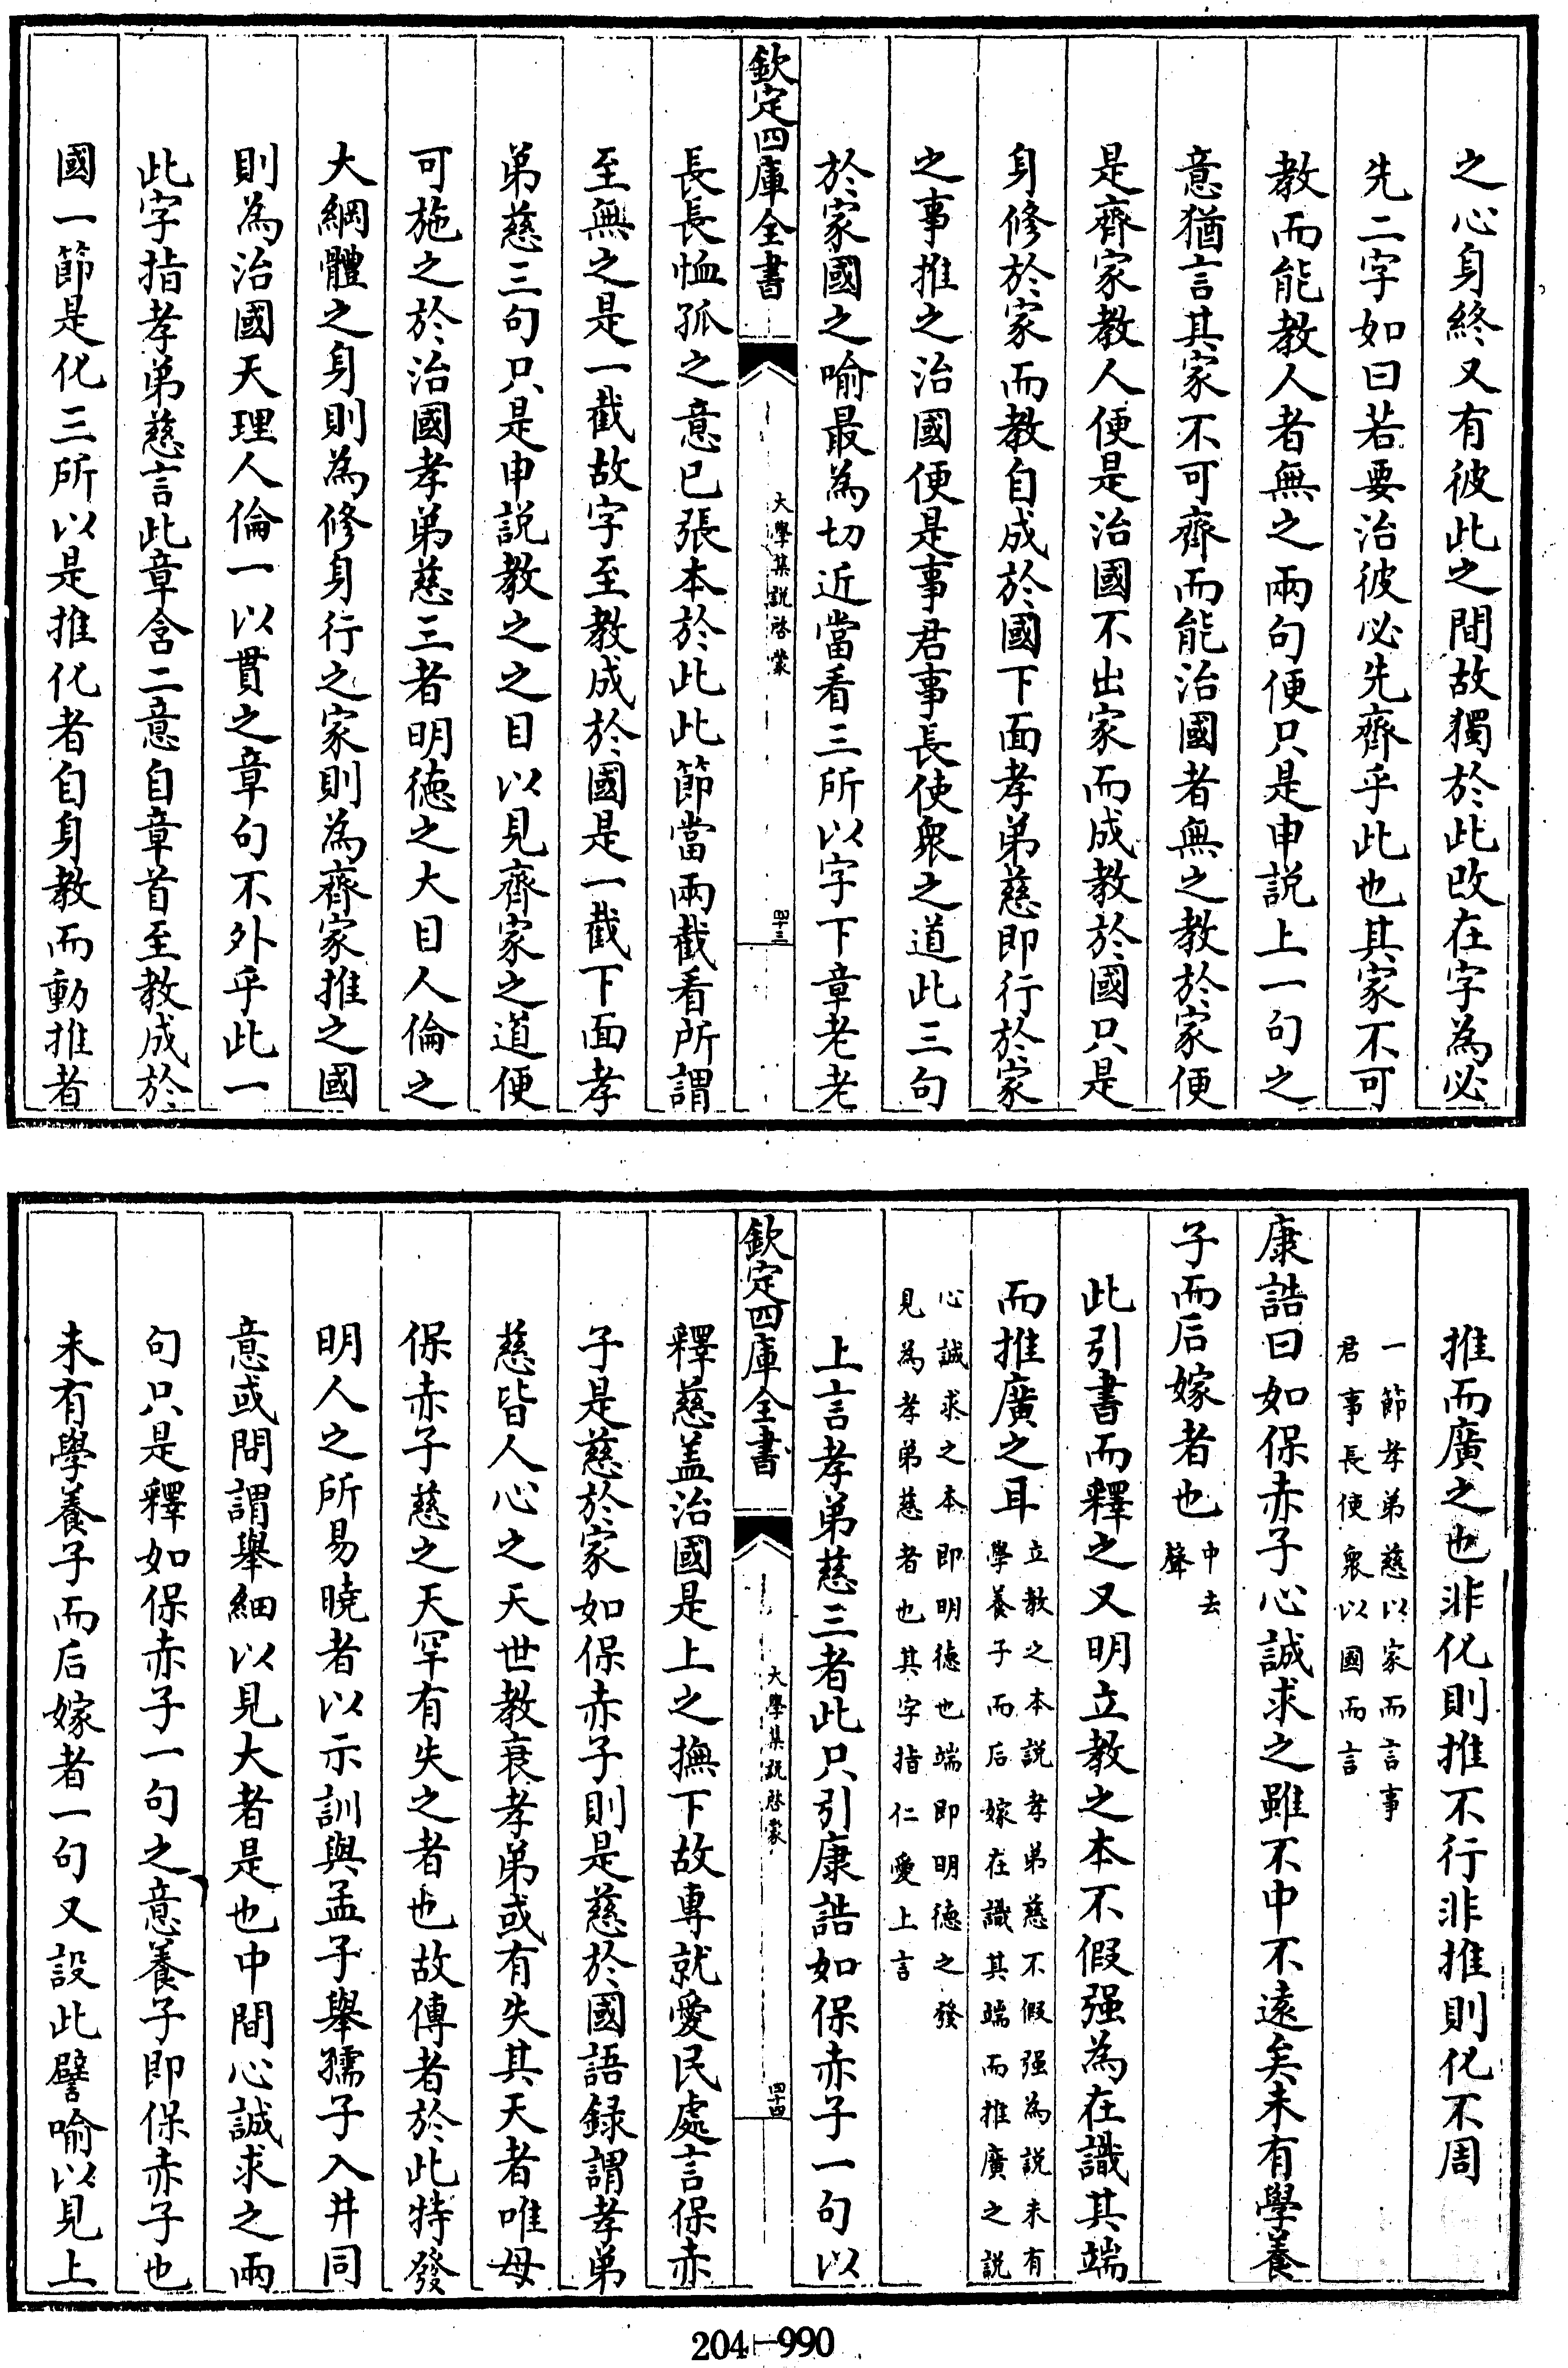 之心身終又有彼此之間故獨於此改在字為必
先二字如曰若要治彼必先齊乎此也其家不可
教而能教人者無之兩句便只是申説上一句之
意猶言其家不可齊而能治國者無之教於家便
是齊家教人便是治國不出家而成教於國只是
身修於家而教自成於國下面孝弟慈即行於家
之事推之治國便是事君事長使衆之道此三句
於家國之喻最為切近當看三所以字下章老老
欽定四庫全書
大學集説啓蒙
四十三
長長恤孤之意已張本於此此節當兩截看所謂
至無之是一截故字至教成於國是一截下面孝
弟慈三句只是申説教之之目以見齊家之道便
可施之於治國孝弟慈三者明徳之大目人倫之
大綱體之身則為修身行之家則為齊家推之國
則為治國天理人倫一以貫之章句不外乎此一
此字指孝弟慈言此章含二意自章首至教成於
國一節是化三所以是推化者自身教而動推者
推而廣之也非化則推不行非推則化不周
一節孝弟慈以家而言事
君事長使衆以國而言
康誥曰如保赤子心誠求之雖不中不逺矣未有學養
子而后嫁者也
中去
聲
此引書而釋之又明立教之本不假强為在識其端
而推廣之耳
立教之本説孝弟慈不假强為説未有
學養子而后嫁在識其端而推廣之説
心誠求之本即明徳也端即明徳之發
見為孝弟慈者也其字指仁愛上言
上言孝弟慈三者此只引康誥如保赤子一句以
欽定四庫全書
大學集説啓蒙
四十四
釋慈盖治國是上之撫下故專就愛民處言保赤
子是慈於家如保赤子則是慈於國語録謂孝弟
慈皆人心之天世教衰孝弟或有失其天者唯母
保赤子慈之天罕有失之者也故傳者於此特發
明人之所易曉者以示訓與孟子舉孺子入井同
意或問謂舉細以見大者是也中間心誠求之兩
句只是釋如保赤子一句之意養子即保赤子也
未有學養子而后嫁者一句又設此譬喻以見上
204-990